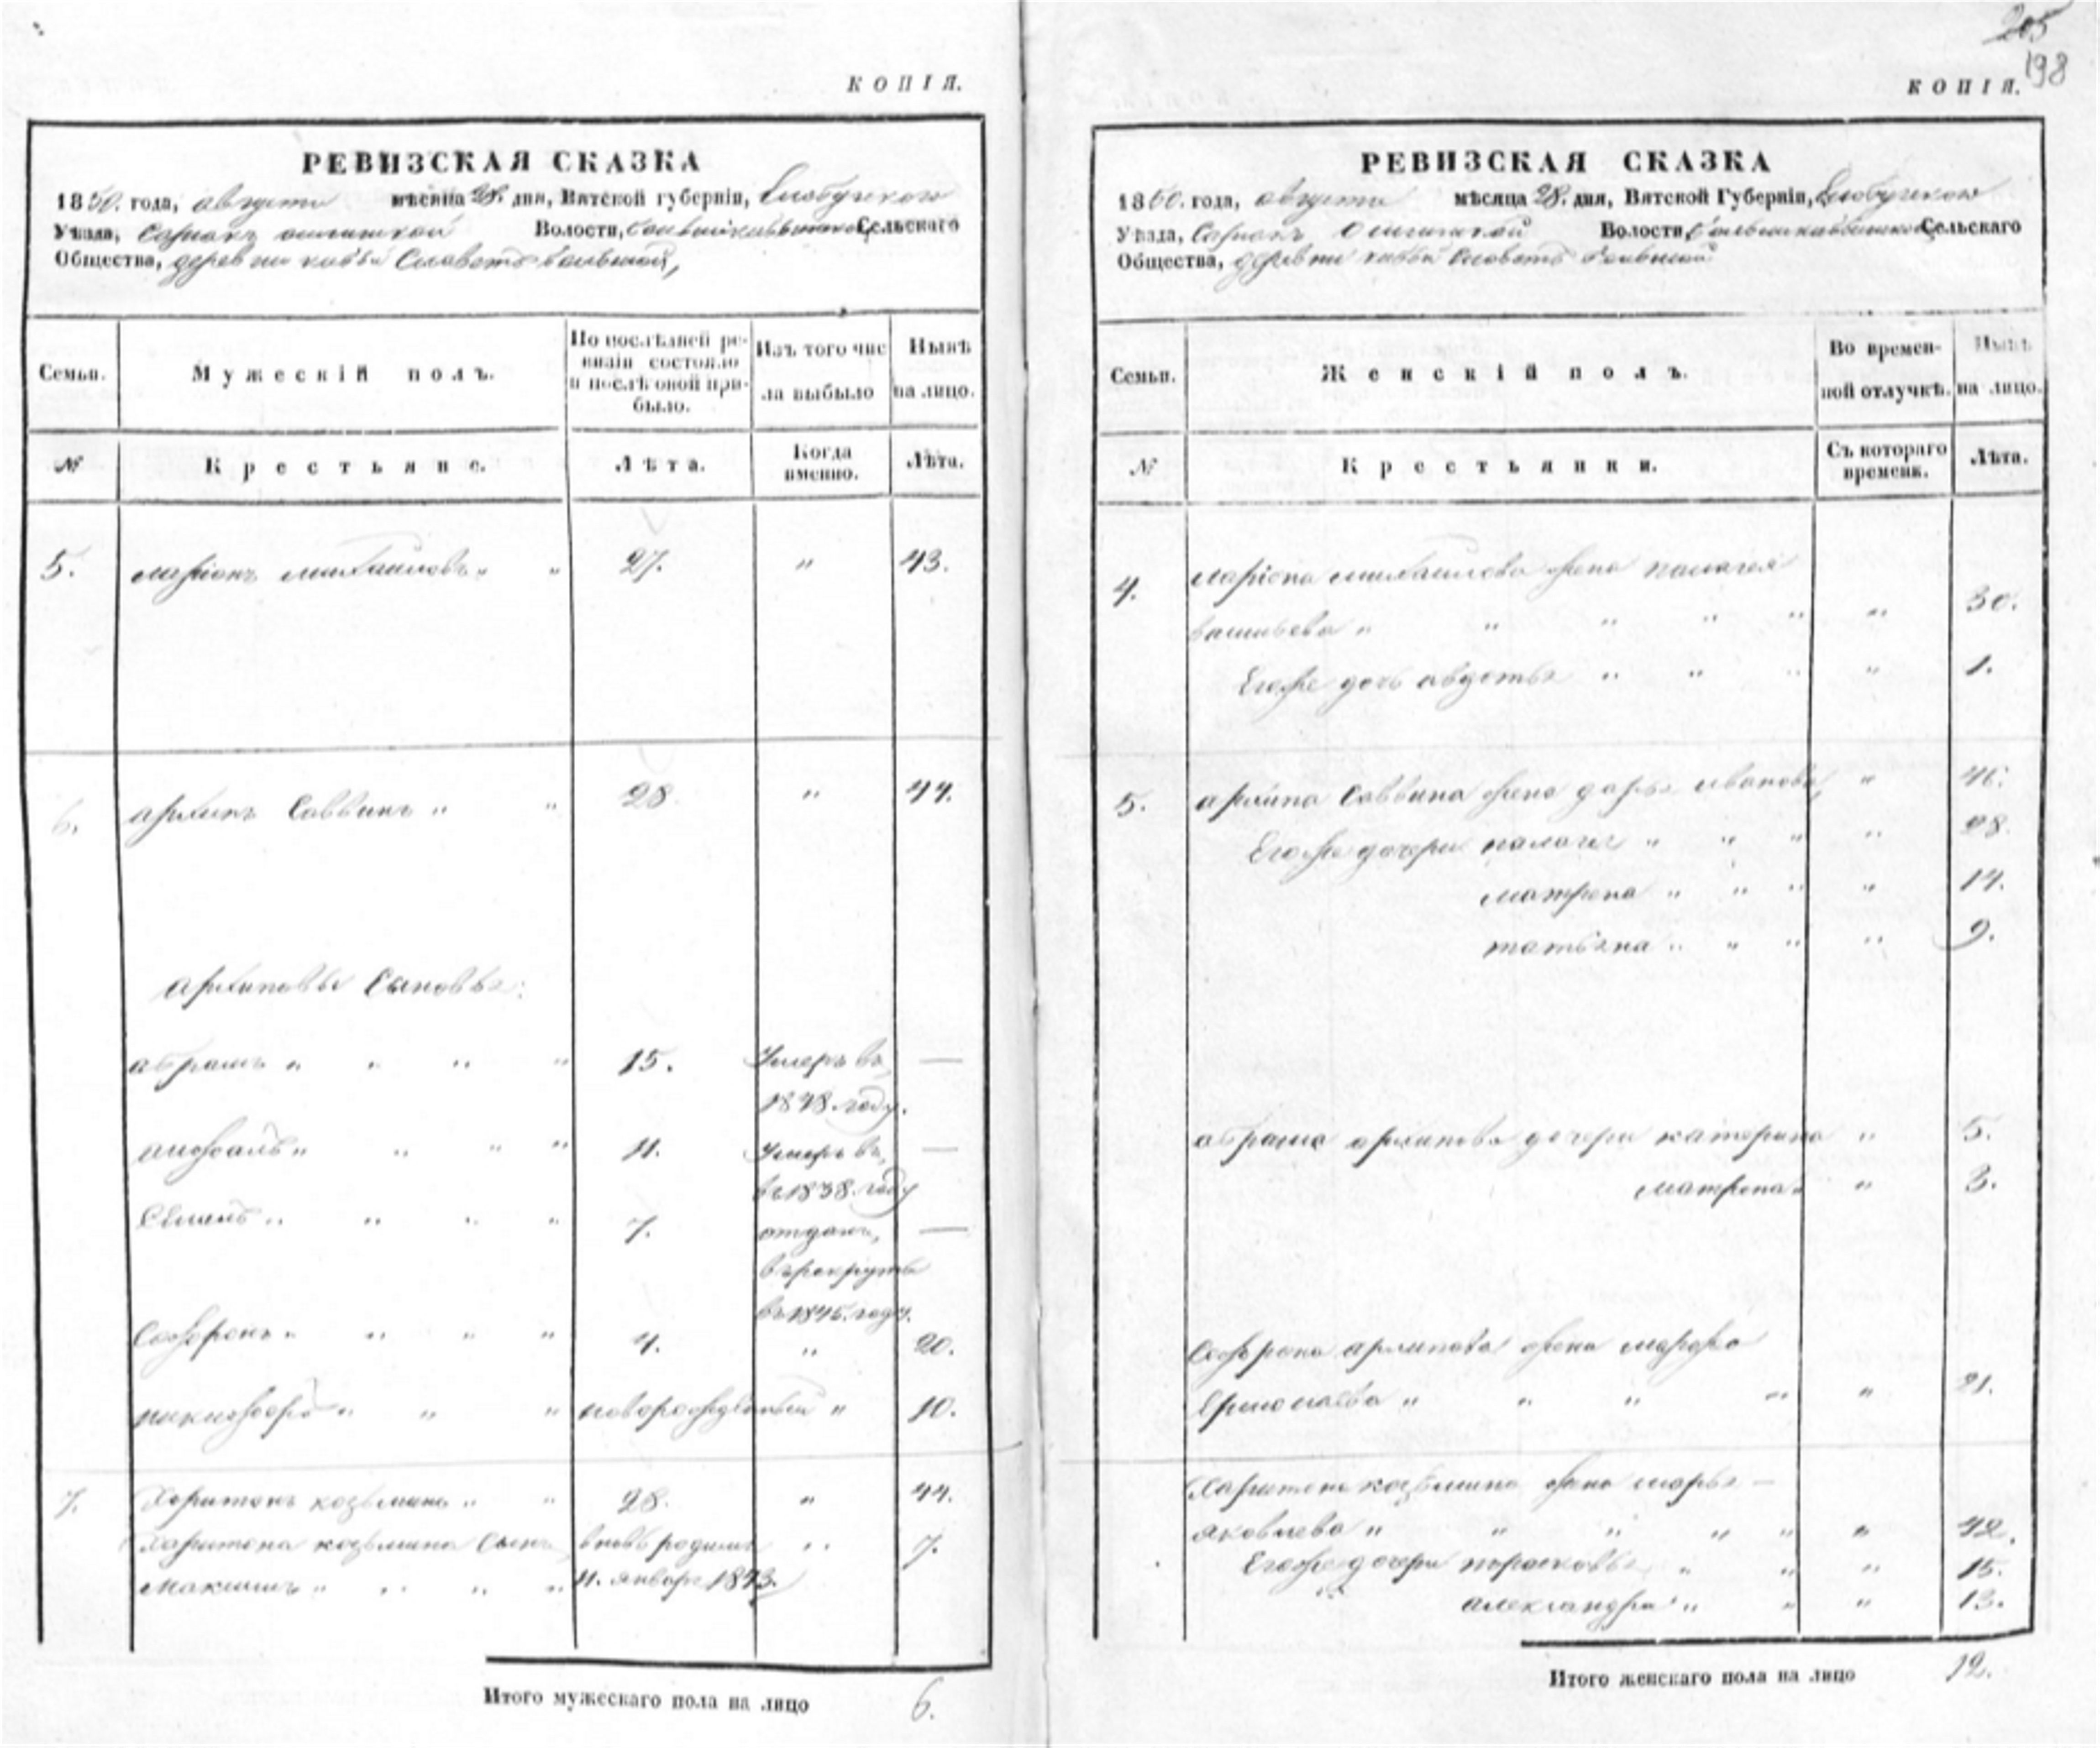 205
198
КОПІЯ.
РЕВИЗСКАЯ СКАЗКА
1850. года, августа мѣсяца 28. дня, Вятской губерніи,
Уѣзда, Волости, Сельскаго
Общества, деревни
Семьи.
Мужескій полъ.
По послѣдней ре-
визіи состояло
и послѣ оной при-
было.
Изъ того чис
ла выбыло
Нынѣ
на лицо.
№
Крестьяне.
Лѣта.
Когда
именно.
Лѣта.
5. Маріонъ Михайловъ " " 27. " 43.
6. Архипъ Саввинъ " " 28 " 44.
Архиповы сыновья:
Абрамъ " " " " 15. Умеръ въ —
1848. году.
" " " " 11. Умеръ въ —
въ 1838. году
Семенъ " " " " 7. отданъ —
въ рекруты
въ 1845. году.
Софронъ " " " " 4. " 20.
Никифоръ " " " новорожденный " 10.
7. Харитонъ Козьминъ " " 28. " 44.
Харитона Козьмина сынъ вновь родился " 7.
Максимъ " " " " 11. января 1843.
Итого мужескаго пола на лицо 6.
КОПІЯ.
РЕВИЗСКАЯ СКАЗКА
1850. года, августа мѣсяца 28. дня, Вятской Губерніи,
Уѣзда, Волости, Сельскаго
Общества, деревни
Семьи.
Женскій полъ.
Во времен-
ной отлучкѣ.
Нынѣ
на лицо.
№
Крестьянки.
Съ котораго
времени.
Лѣта.
4. Маріона Михайлова жена Палагея
Васильева " " " " " " 30.
Егоже дочь Авдотья " " " " 1.
5. Архипа Саввина жена Дарья Иванова " 46.
Егоже дочери Палагея " " " " 28.
Матрена " " " " 14.
Татьяна " " " " 9.
Абрама Архипова дочери Катерина " 5.
Матрена " " 3.
Софрона Архипова жена Марфа
Ермолаева " " " " " 21.
Харитона Козьмина жена Марья —
Яковлева " " " " " " 42.
Егоже дочери Парасковья " " " 15.
Александра " " " 13.
Итого женскаго пола на лицо 12.